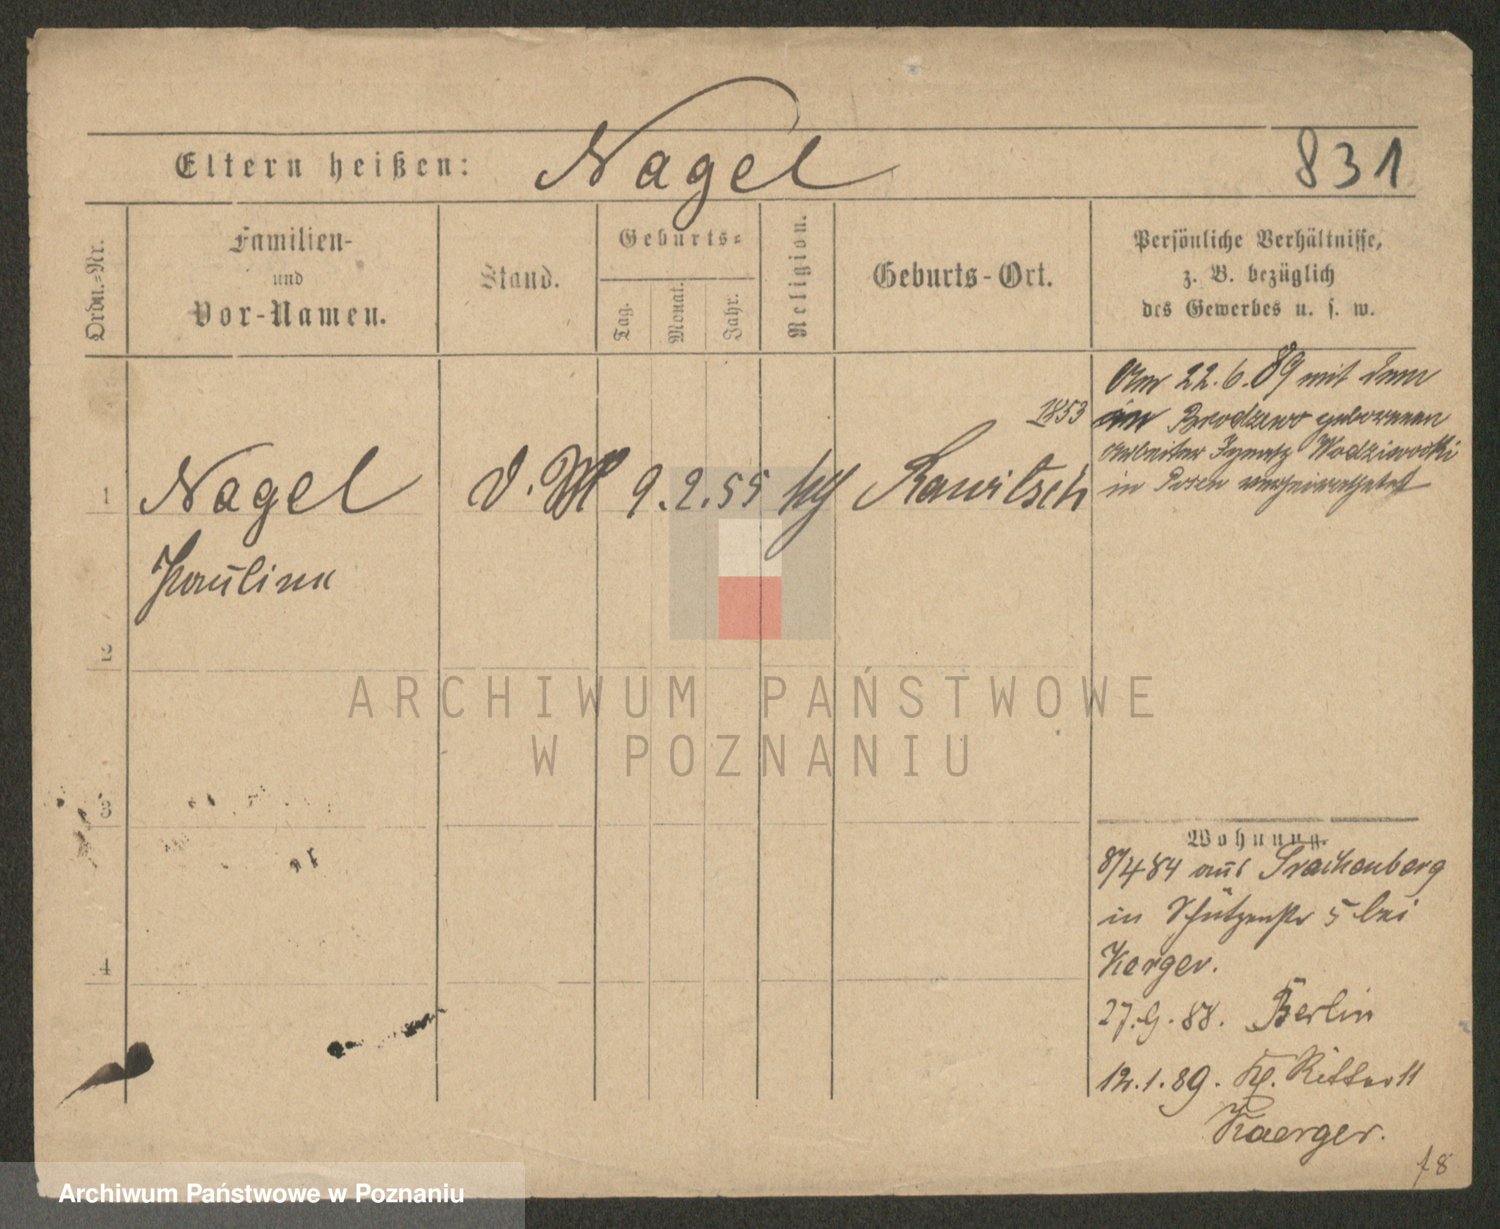 Eltern heißen: Nagel 831
Ordn.-Nr.
Familien-
und
Vor-Namen.
Stand.
Geburts-
Tag.
Monat.
Jahr.
Religion.
Geburts-Ort.
Persönliche Verhältnisse,
z. B. bezüglich
des Gewerbes u. s. w.
Am 22.6.89 mit dem
1853 in Brodzewo geborenen
Arbeiter Ignatz Wodziwodki
in Posen verheirathet
1 Nagel d. M 9.2.55 kth Rawitsch
Paulina
2
3
4
Wohnung.
8/4 84 aus Trachenberg
in Schützenstr 5 bei
Karger.
27.9.88. Berlin
12.1.89. Kl. Ritterstr
Kaerger.
f8
ARCHIWUM PAŃSTWOWE
W POZNANIU
Archiwum Państwowe w Poznaniu